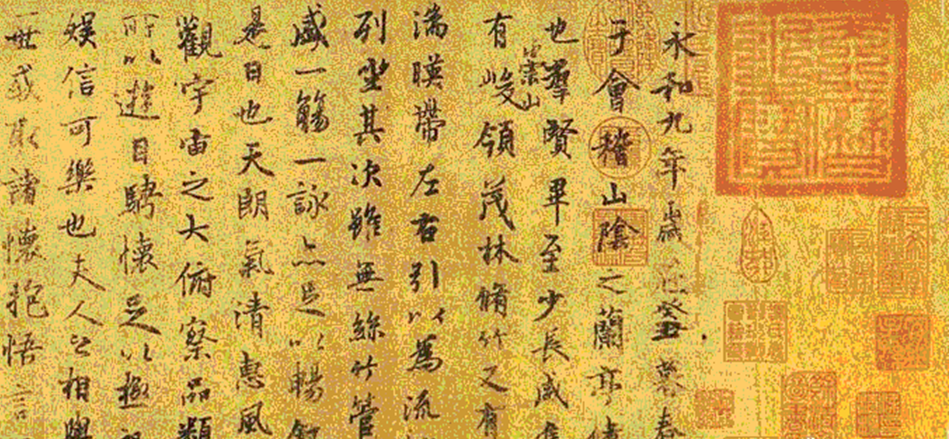 永和九年歲在癸丑暮春
于會稽山陰之蘭亭脩
也羣賢畢至少長咸集
有崇山峻領茂林脩竹又有
湍暎帶左右引以為流
列坐其次雖無絲竹管
盛一觴一詠亦足以暢敘
是日也天朗氣清惠風
觀宇宙之大俯察品類
所以遊目騁懷足以極視
娛信可樂也夫人之相與
世或取諸懷抱悟言